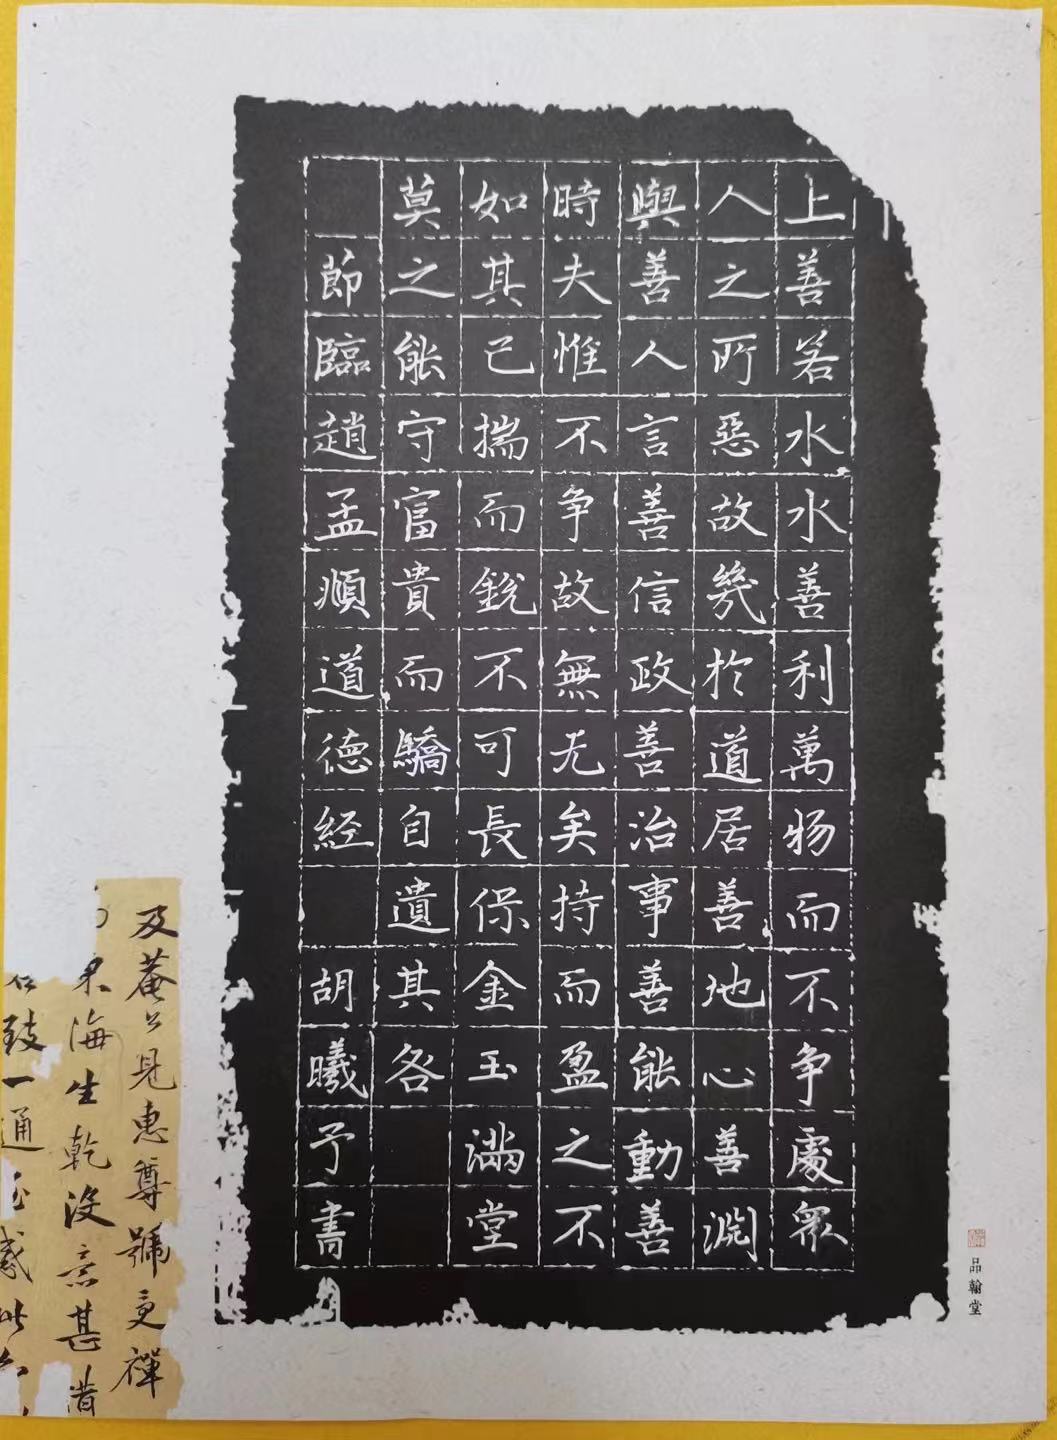 上善若水水善利萬物而不争處眾
人之所惡故幾於道居善地心善淵
與善人言善信政善治事善能動善
時夫惟不争故無尤矣持而盈之不
如其已揣而銳不可長保金玉滿堂
莫之能守富貴而驕自遺其咎
節臨趙孟頫道德經 胡曦予書
品翰堂
及菴公見惠尊號更禪
海生乾没意甚
致一通